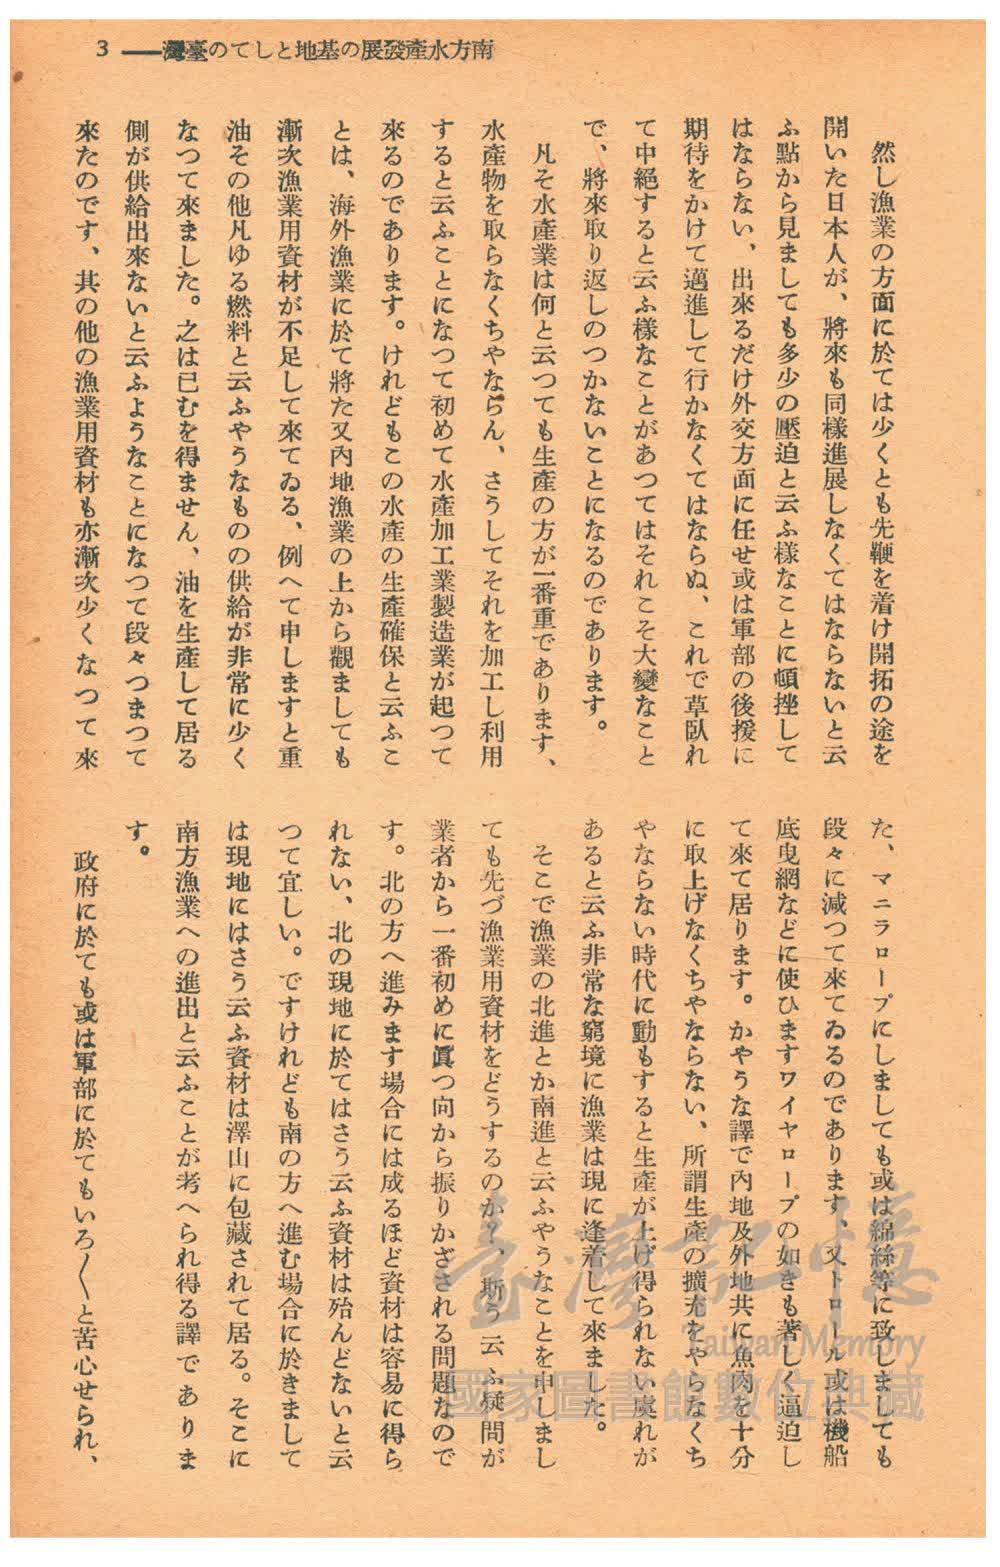 南方水產發展の基地としての臺灣 —— 3
然し漁業の方面に於ては少くとも先鞭を着け開拓の途を
開いた日本人が、將來も同樣進展しなくてはならないと云
ふ點から見ましても多少の壓迫と云ふ樣なことに頓挫して
はならない、出來るだけ外交方面に任せ或は軍部の後援に
期待をかけて邁進して行かなくてはならぬ、これで草臥れ
て中絕すると云ふ樣なことがあつてはそれこそ大變なこと
で、將來取り返しのつかないことになるのであります。
凡そ水產業は何と云つても生產の方が一番重であります、
水產物を取らなくちやならん、さうしてそれを加工し利用
すると云ふことになつて初めて水產加工業製造業が起つて
來るのであります。けれどもこの水產の生產確保と云ふこ
とは、海外漁業に於て將た又內地漁業の上から觀ましても
漸次漁業用資材が不足して來てゐる、例へて申しますと重
油その他凡ゆる燃料と云ふやうなものの供給が非常に少く
なつて來ました。之は已むを得ません、油を生產して居る
側が供給出來ないと云ふようなことになつて段々つまつて
來たのです、其の他の漁業用資材も亦漸次少くなつて來
た、マニラロープにしましても或は綿絲等に致しましても
段々に減つて來てゐるのであります、又トロール或は機船
底曳網などに使ひますワイヤロープの如きも著しく逼迫し
て來て居ります。かやうな譯で內地及外地共に魚肉を十分
に取上げなくちやならない、所謂生產の擴充をやらなくち
やならない時代に動もすると生產が上げ得られない虞れが
あると云ふ非常な窮境に漁業は現に逢着して來ました。
そこで漁業の北進とか南進と云ふやうなことを申しまし
ても先づ漁業用資材をどうするのか?、斯う云ふ疑問が
業者から一番初めに眞つ向から振りかざされる問題なので
す。北の方へ進みます場合には成るほど資材は容易に得ら
れない、北の現地に於てはさう云ふ資材は殆んどないと云
つて宜しい。ですけれども南の方へ進む場合に於きまして
は現地にはさう云ふ資材は澤山に包藏されて居る。そこに
南方漁業への進出と云ふことが考へられ得る譯でありま
す。
政府に於ても或は軍部に於てもいろ〱と苦心せられ、
臺灣記憶
Taiwan Memory
國家圖書館數位典藏